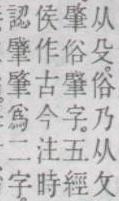 从殳。俗乃从攵
肇俗肈字。五經
侯作古今注時
認肈肇爲二字。